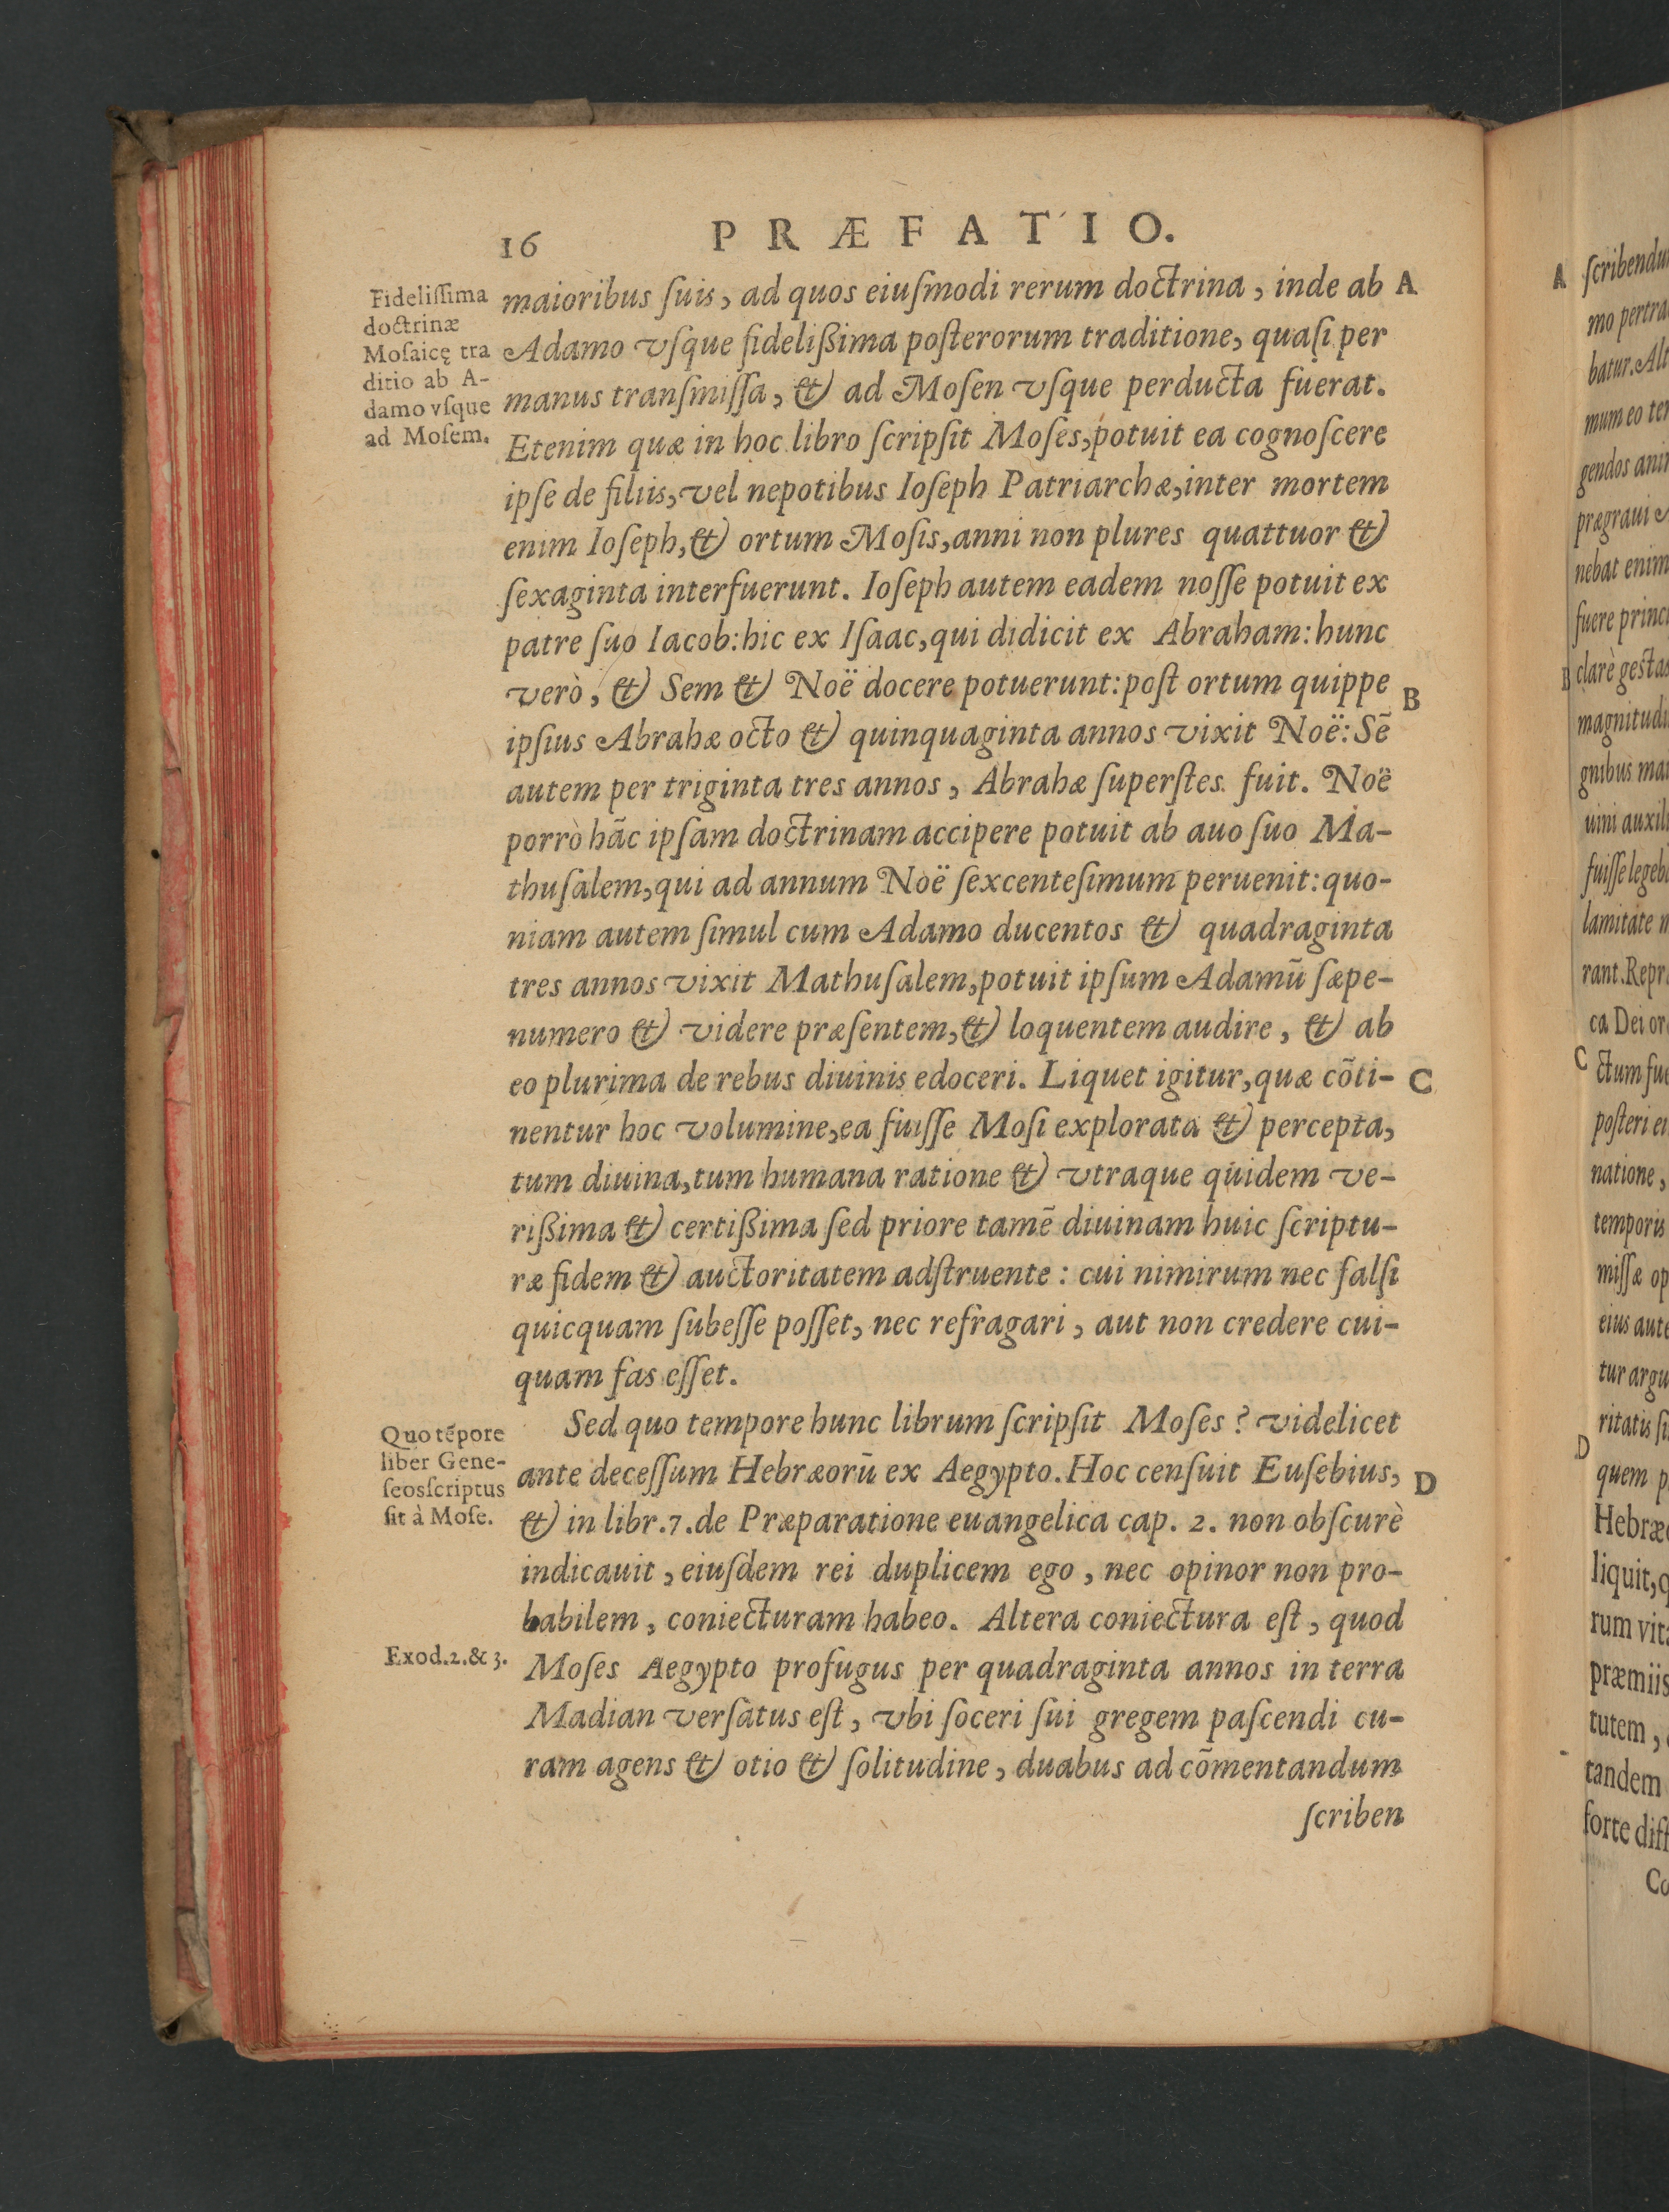 16 PRÆFATIO.
Fidelissima
doctrinæ
Mosaicę tra
ditio ab A-
damo vsque
ad Mosem.
maioribus ſuis, ad quos eiuſmodi rerum doctrina, inde ab A
Adamo vſque fidelißima poſterorum traditione, quaſi per
manus tranſmiſſa, & ad Moſen vſque perducta fuerat.
Etenim quæ in hoc libro ſcripſit Moſes, potuit ea cognoſcere
ipſe de filiis, vel nepotibus Ioſeph Patriarchæ, inter mortem
enim Ioſeph, & ortum Moſis, anni non plures quattuor &
ſexaginta interfuerunt. Ioſeph autem eadem noſſe potuit ex
patre ſuo Iacob: hic ex Iſaac, qui didicit ex Abraham: hunc
verò, & Sem & Noë docere potuerunt: poſt ortum quippe B
ipſius Abrahæ octo & quinquaginta annos vixit Noë: Sẽ
autem per triginta tres annos, Abrahæ ſuperſtes fuit. Noë
porrò hãc ipſam doctrinam accipere potuit ab auo ſuo Ma-
thuſalem, qui ad annum Noë ſexcenteſimum peruenit: quo-
niam autem ſimul cum Adamo ducentos & quadraginta
tres annos vixit Mathuſalem, potuit ipſum Adamũ ſæpe-
numero & videre præſentem, & loquentem audire, & ab
eo plurima de rebus diuinis edoceri. Liquet igitur, quæ cõti- C
nentur hoc volumine, ea fuiſſe Moſi explorata & percepta,
tum diuina, tum humana ratione & vtraque quidem ve-
rißima & certißima ſed priore tamẽ diuinam huic ſcriptu-
ræ fidem & auctoritatem adſtruente: cui nimirum nec falſi
quicquam ſubeſſe poſſet, nec refragari, aut non credere cui-
quam fas eſſet.
Quo tẽpore
liber Gene-
ſeos ſcriptus
ſit à Moſe.
Sed quo tempore hunc librum ſcripſit Moſes? videlicet
ante deceſſum Hebræorũ ex Aegypto. Hoc cenſuit Euſebius, D
& in libr. 7. de Præparatione euangelica cap. 2. non obſcurè
indicauit, eiuſdem rei duplicem ego, nec opinor non pro-
babilem, coniecturam habeo. Altera coniectura eſt, quod
Exod. 2. & 3.
Moſes Aegypto profugus per quadraginta annos in terra
Madian verſatus eſt, vbi ſoceri ſui gregem paſcendi cu-
ram agens & otio & ſolitudine, duabus ad cõmentandum
ſcriben
A
mo pertra
batur. Alt
mum eo ter
nebat enim
fuere princi
clarè geſtas
gnibus ma
uini auxil
lamitate
rant. Repr
ca Dei or
C
ctum fu
poſteri ei
natione,
temporis
miſſæ op
eius aut
tur argu
ritatis ſi
D
quem p
Hebræ
liquit, q
rum vit
præmiis
tutem,
tandem
forte diſ
Co